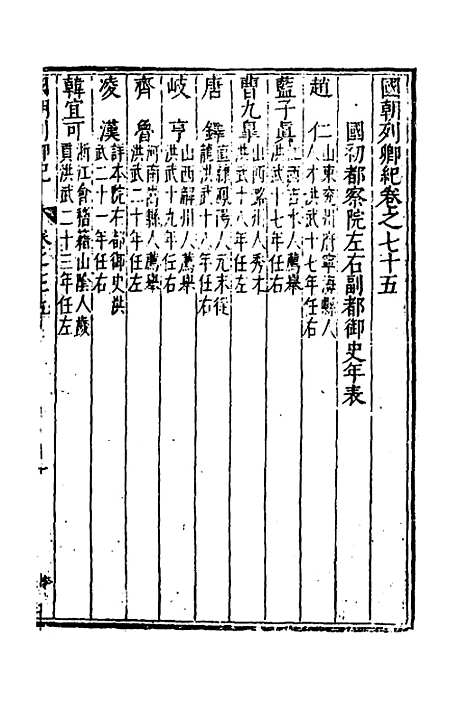 國朝列卿紀卷之七十五
國初都察院左右副都御史年表
趙仁 山東兗州府寧海縣人
人才洪武十七年任右
藍子真 江西吉水人薦舉
洪武十七年任右
曹九皋 山西潞州人秀才
洪武十八年任左
唐鐸 直隸鳳陽人元末從
龍洪武十八年任右
岐亨 山西解州人薦舉
洪武十九年任右
齊魯 河南嵩縣人薦舉
洪武二十年任左
凌漢 詳本院右都御史洪
武二十一年任右
韓宜可 浙江會稽籍山陰人歲
貢洪武二十三年任左
國朝列卿紀 卷之七十五